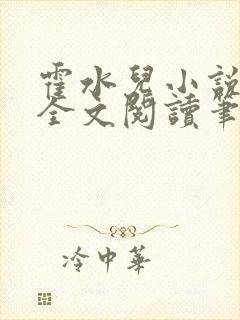 霍水兒小說
全文閱讀筆
冷中華